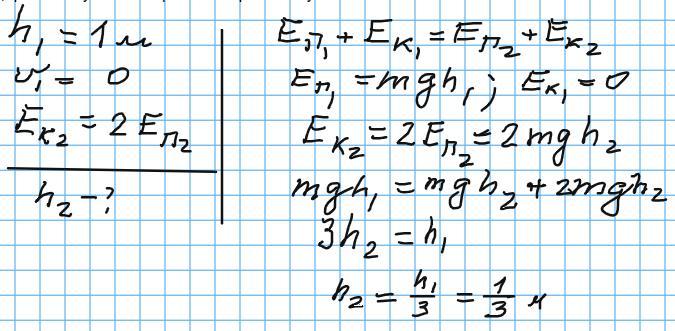 h₁ = 1 м
v₁ = 0
Eк₂ = 2 Eп₂
h₂ - ?
Eп₁ + Eк₁ = Eп₂ + Eк₂
Eп₁ = mgh₁ ; Eк₁ = 0
Eк₂ = 2Eп₂ = 2mgh₂
mgh₁ = mgh₂ + 2mgh₂
3h₂ = h₁
h₂ = h₁/3 = 1/3 м